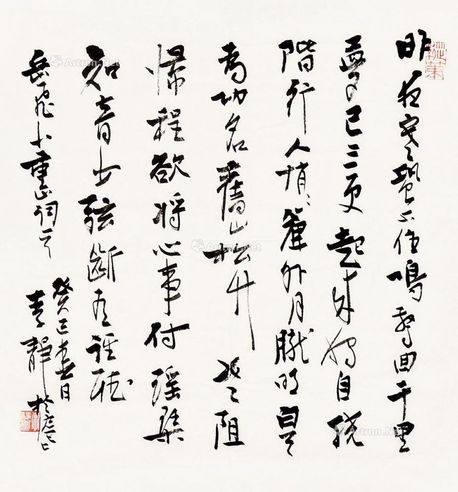 昨夜寒蛩不住鳴驚回千里
夢已三更起來獨自繞
階行人悄悄簾外月朧明白首
為功名舊山松竹老阻
歸程欲將心事付瑤琴
知音少弦斷有誰聽
岳飛小重山詞
癸巳春日
李靜於